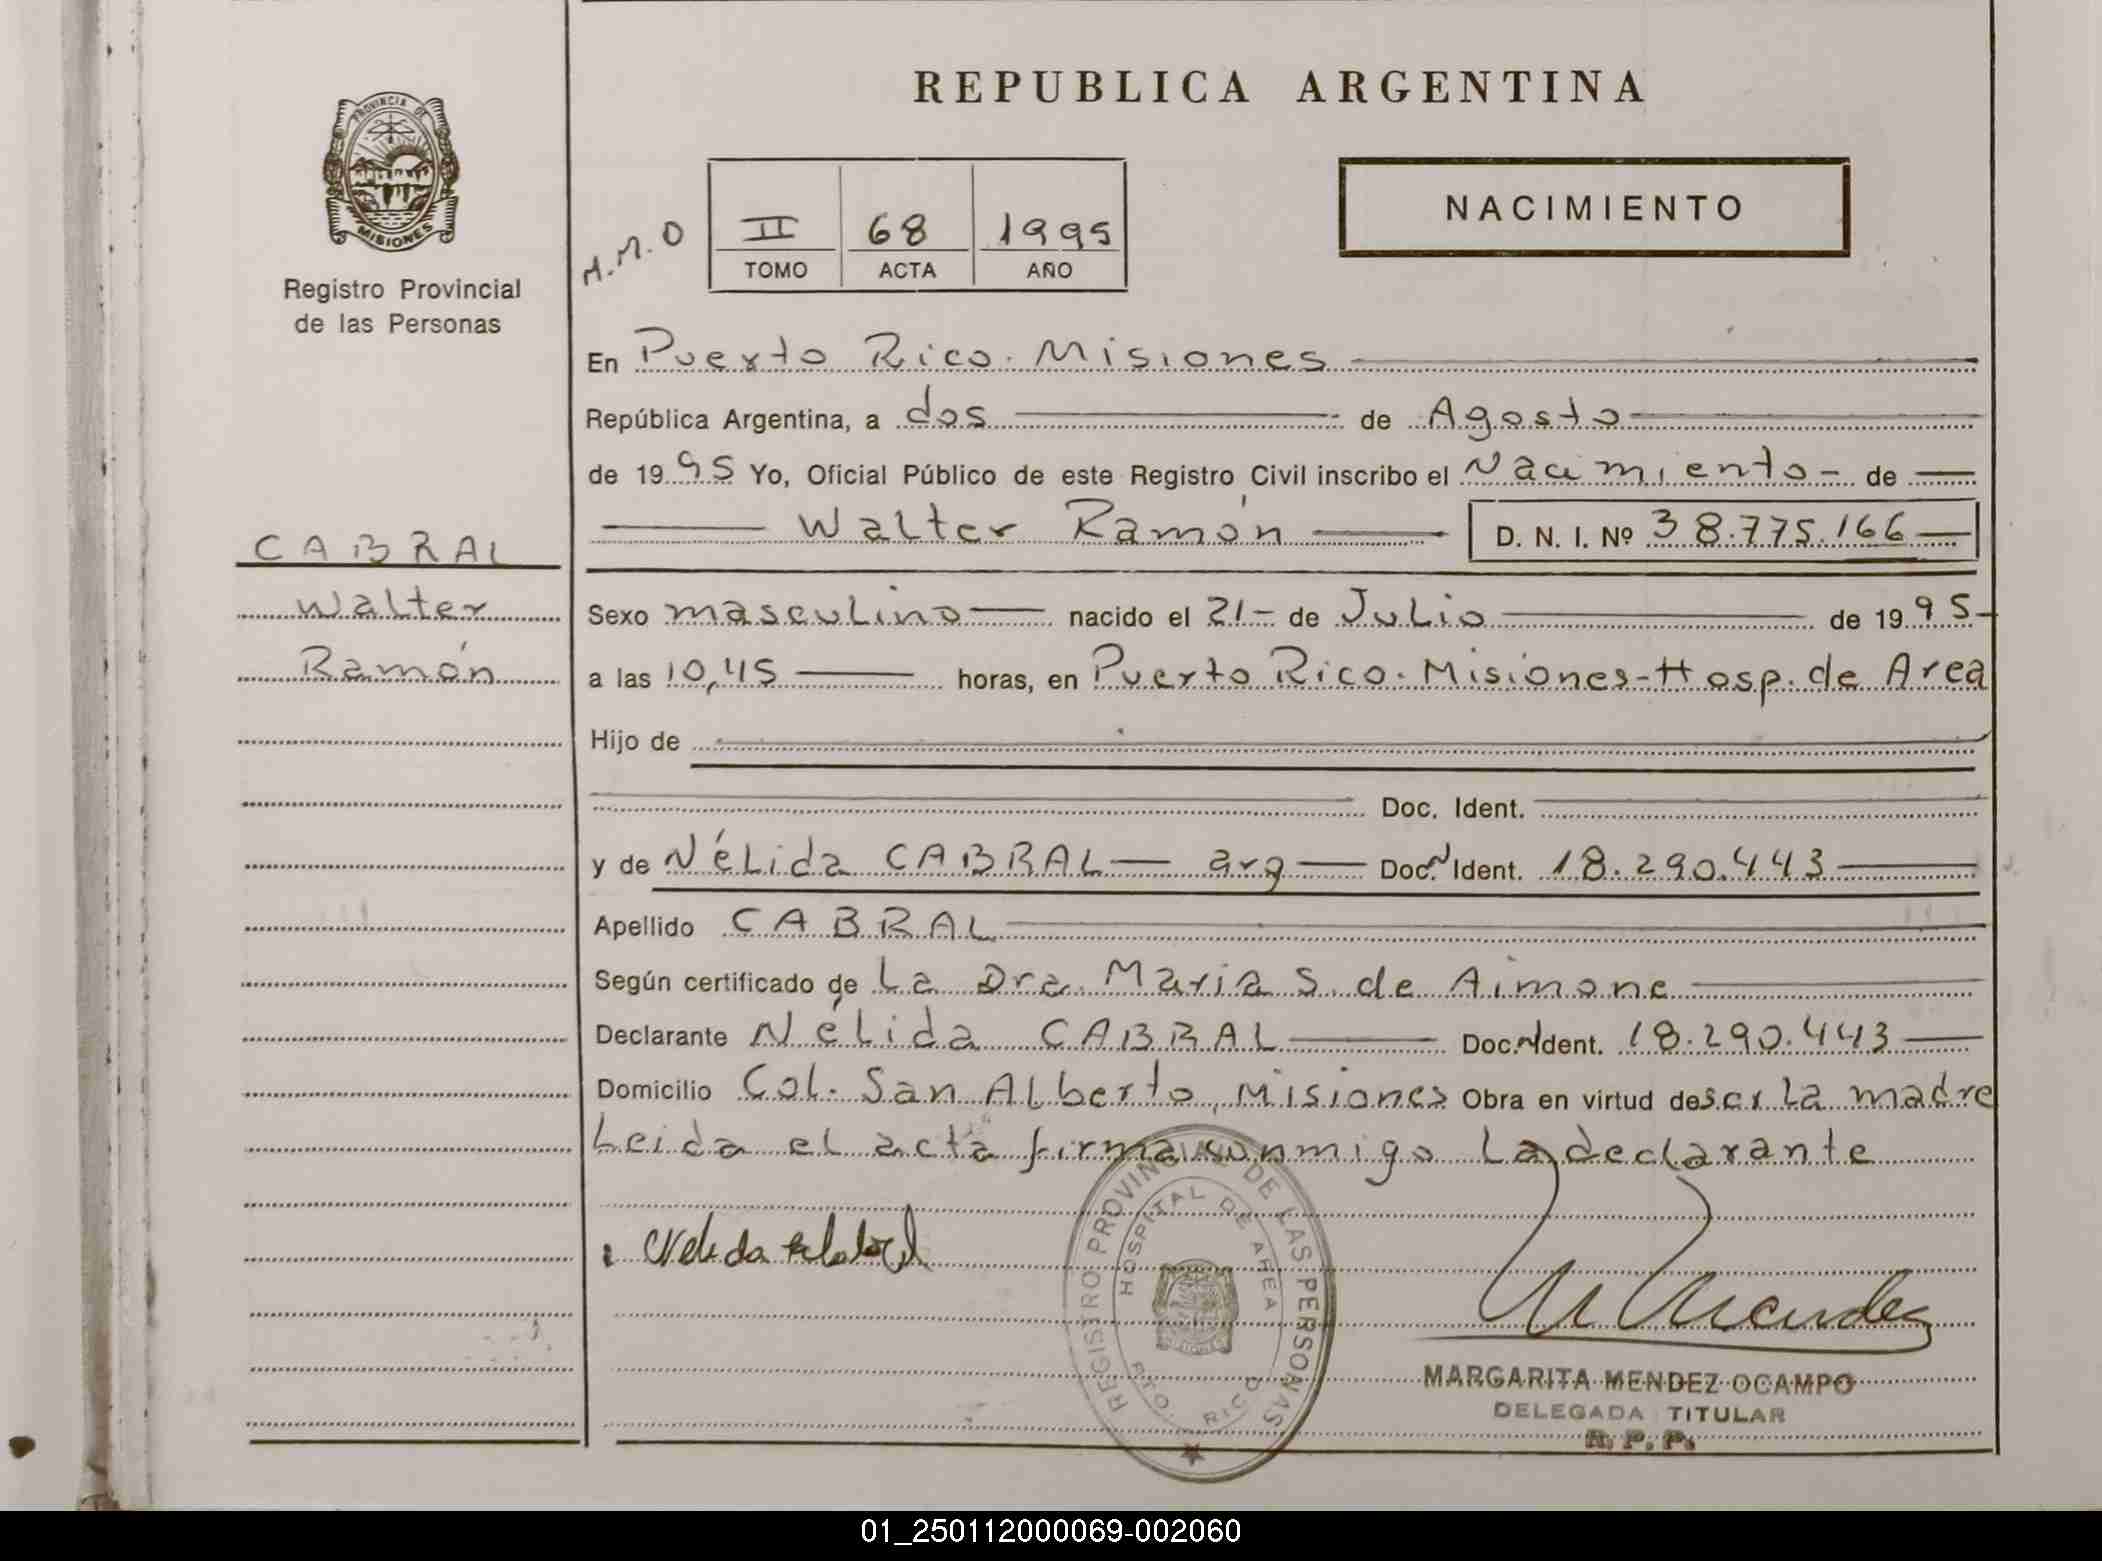 REPUBLICA ARGENTINA
PROVINCIA DE MISIONES
Registro Provincial
de las Personas
NACIMIENTO
M.M.O
II 68 1995
TOMO ACTA AÑO
En Puerto Rico. Misiones
República Argentina, a dos de Agosto
de 1995 Yo, Oficial Público de este Registro Civil inscribo el Nacimiento - de
Walter Ramón D. N. I. Nº 38.775.166
CABRAL
Walter
Ramón
Sexo masculino nacido el 21 - de Julio de 1995
a las 10,45 horas, en Puerto Rico. Misiones - Hosp. de Area
Hijo de
Doc. Ident.
y de Nélida CABRAL arg Doc. N Ident. 18.290.443
Apellido CABRAL
Según certificado de La Dra. Maria S. de Aimone
Declarante Nélida CABRAL Doc. N Ident. 18.290.443
Domicilio Col. San Alberto, Misiones Obra en virtud de ser La madre
Leida el acta firma conmigo La declarante
REGISTRO PROVINCIAL DE LAS PERSONAS
HOSPITAL DE AREA
PTO. RICO
MARGARITA MENDEZ OCAMPO
DELEGADA TITULAR
R. P. P.
01_250112000069-002060